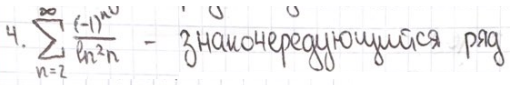 4. ∑_{n=2}^{∞} (-1)^n / ln²n - знакочередующийся ряд